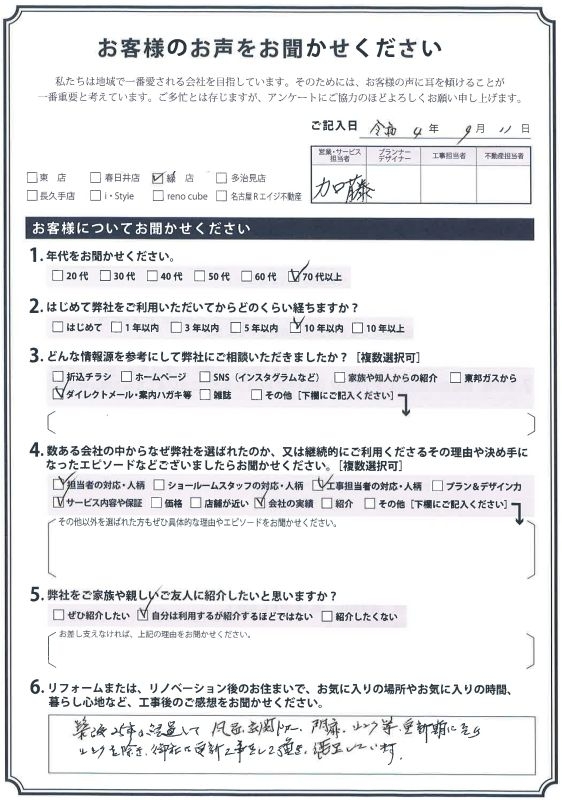 お客様のお声をお聞かせください
私たちは地域で一番愛される会社を目指しています。そのためには、お客様の声に耳を傾けることが
一番重要と考えています。ご多忙とは存じますが、アンケートにご協力のほどよろしくお願い申し上げます。
ご記入日 令和 4 年 9 月 11 日
営業・サービス担当者 プランナーデザイナー 工事担当者 不動産担当者
加藤
東 店 春日井店 緑 店 多治見店
長久手店 i・Style reno cube 名古屋Rエイジ不動産
お客様についてお聞かせください
1. 年代をお聞かせください。
20代 30代 40代 50代 60代 70代以上
2. はじめて弊社をご利用いただいてからどのくらい経ちますか？
はじめて 1年以内 3年以内 5年以内 10年以内 10年以上
3. どんな情報源を参考にして弊社にご相談いただきましたか？［複数選択可］
折込チラシ ホームページ SNS（インスタグラムなど） 家族や知人からの紹介 東邦ガスから
ダイレクトメール・案内ハガキ等 雑誌 その他［下欄にご記入ください］
4. 数ある会社の中からなぜ弊社を選ばれたのか、又は継続的にご利用くださるその理由や決め手に
なったエピソードなどございましたらお聞かせください。［複数選択可］
担当者の対応・人柄 ショールームスタッフの対応・人柄 工事担当者の対応・人柄 プラン＆デザイン力
サービス内容や保証 価格 店舗が近い 会社の実績 紹介 その他［下欄にご記入ください］
その他以外を選ばれた方もぜひ具体的な理由やエピソードをお聞かせください。
5. 弊社をご家族や親しいご友人に紹介したいと思いますか？
ぜひ紹介したい 自分は利用するが紹介するほどではない 紹介したくない
お差し支えなければ、上記の理由をお聞かせください。
6. リフォームまたは、リノベーション後のお住まいで、お気に入りの場所やお気に入りの時間、
暮らし心地など、工事後のご感想をお聞かせください。
築後25年が経過して 風呂、玄関ドアー、門扉、 等、更新期に
を除き、御社に更新工事をして 、満足しています。